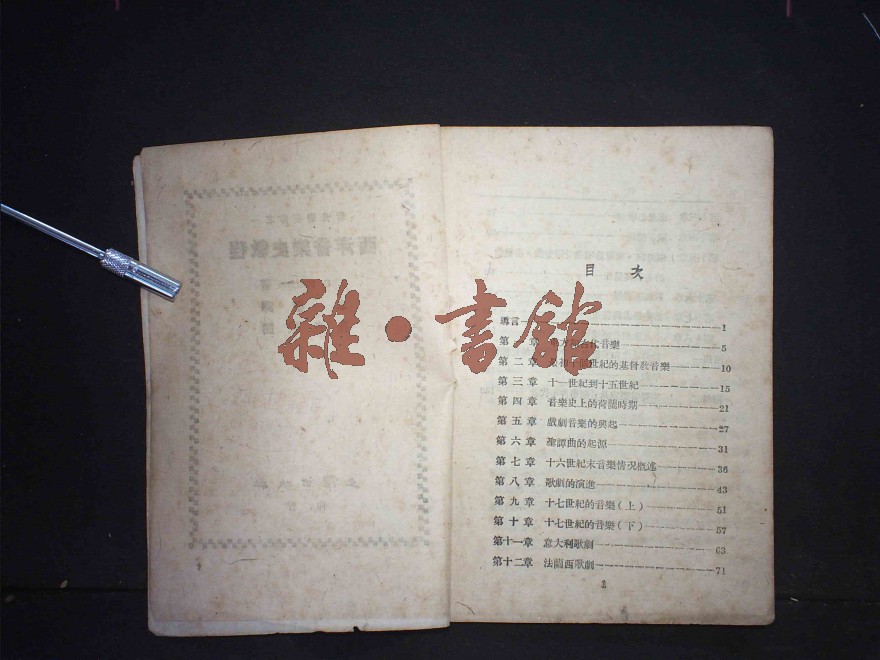 西洋音樂史教程
目次
導言 1
第一章 古代音樂 5
第二章 最初十個世紀的基督教音樂 10
第三章 十一世紀到十五世紀 15
第四章 音樂史上的荷蘭時期 21
第五章 戲劇音樂的興起 27
第六章 聖譚曲的起源 31
第七章 十六世紀末音樂情況概述 36
第八章 歌劇的演進 43
第九章 十七世紀的音樂(上) 51
第十章 十七世紀的音樂(下) 57
第十一章 意大利歌劇 63
第十二章 法蘭西歌劇 71
1
雜·書館